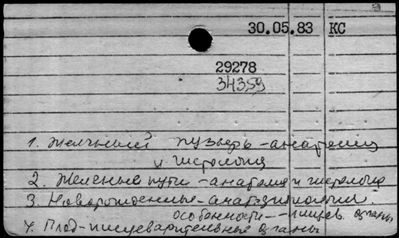 30.05.83 КС
29278
34359
1. Желчный пузырь - анатомия
и гистология
2. Желчные пути - анатомия и гистология
3. Новорожденные - анат.-физиологич.
особенности - пищев. органы
4. Плод - пищеварительные органы